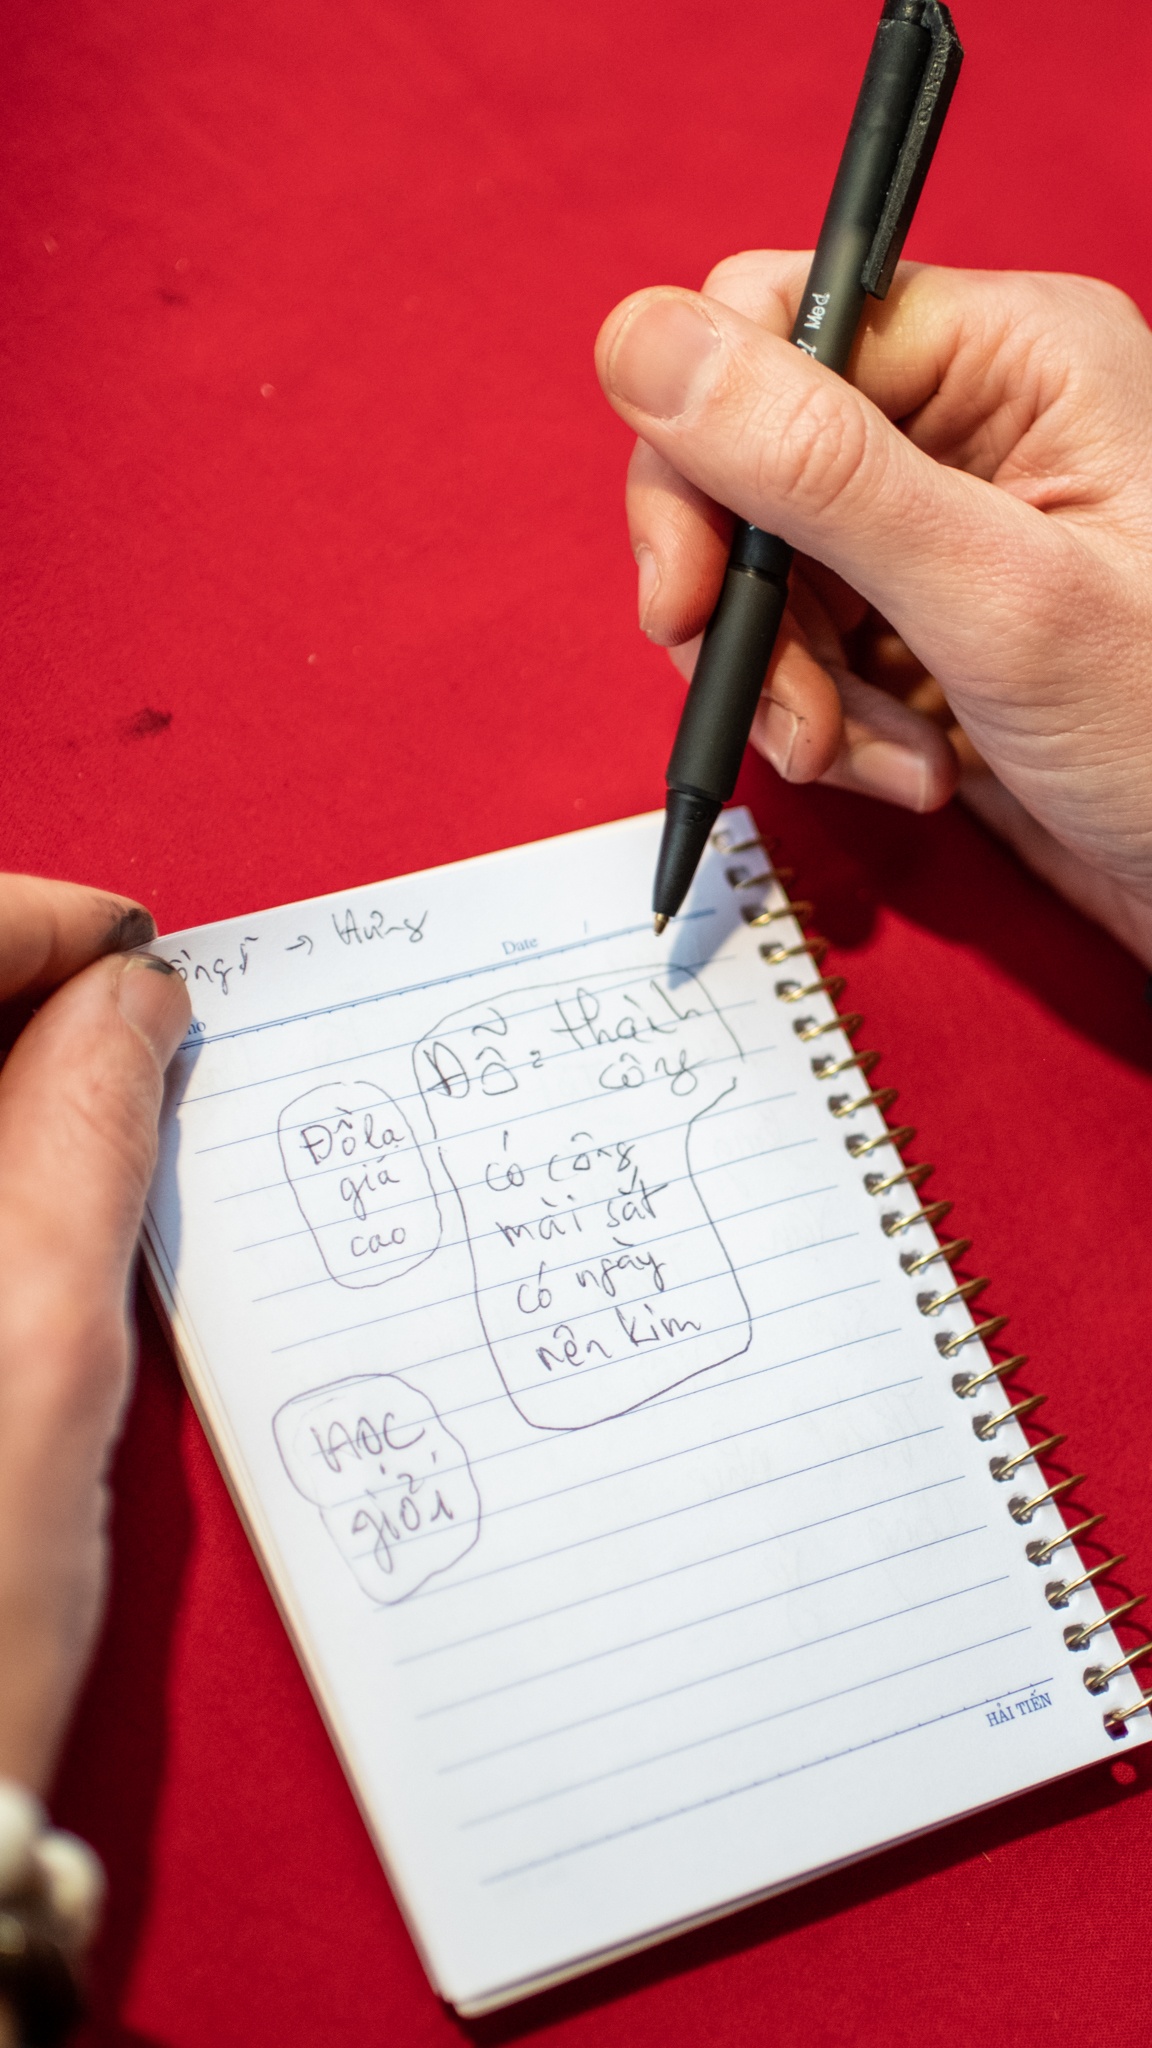 MEXICO
Med
→ Hưng
Date
Đỗ = thành
công
Đôla
giá
cao
có công
mài sắt
có ngày
nên kim
HỌC
giỏi
HẢI TIẾN